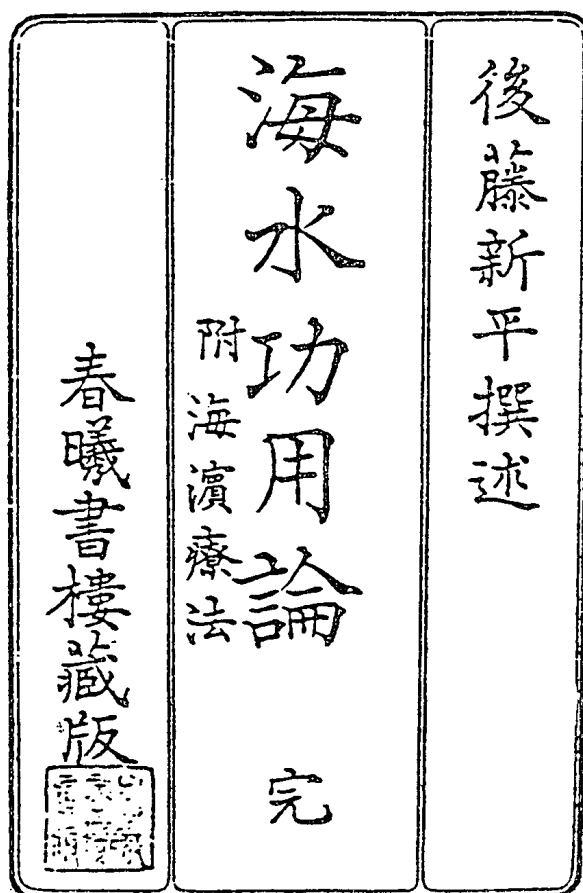 後藤新平撰述
海水功用論 完
附海濱療法
春曦書樓藏版